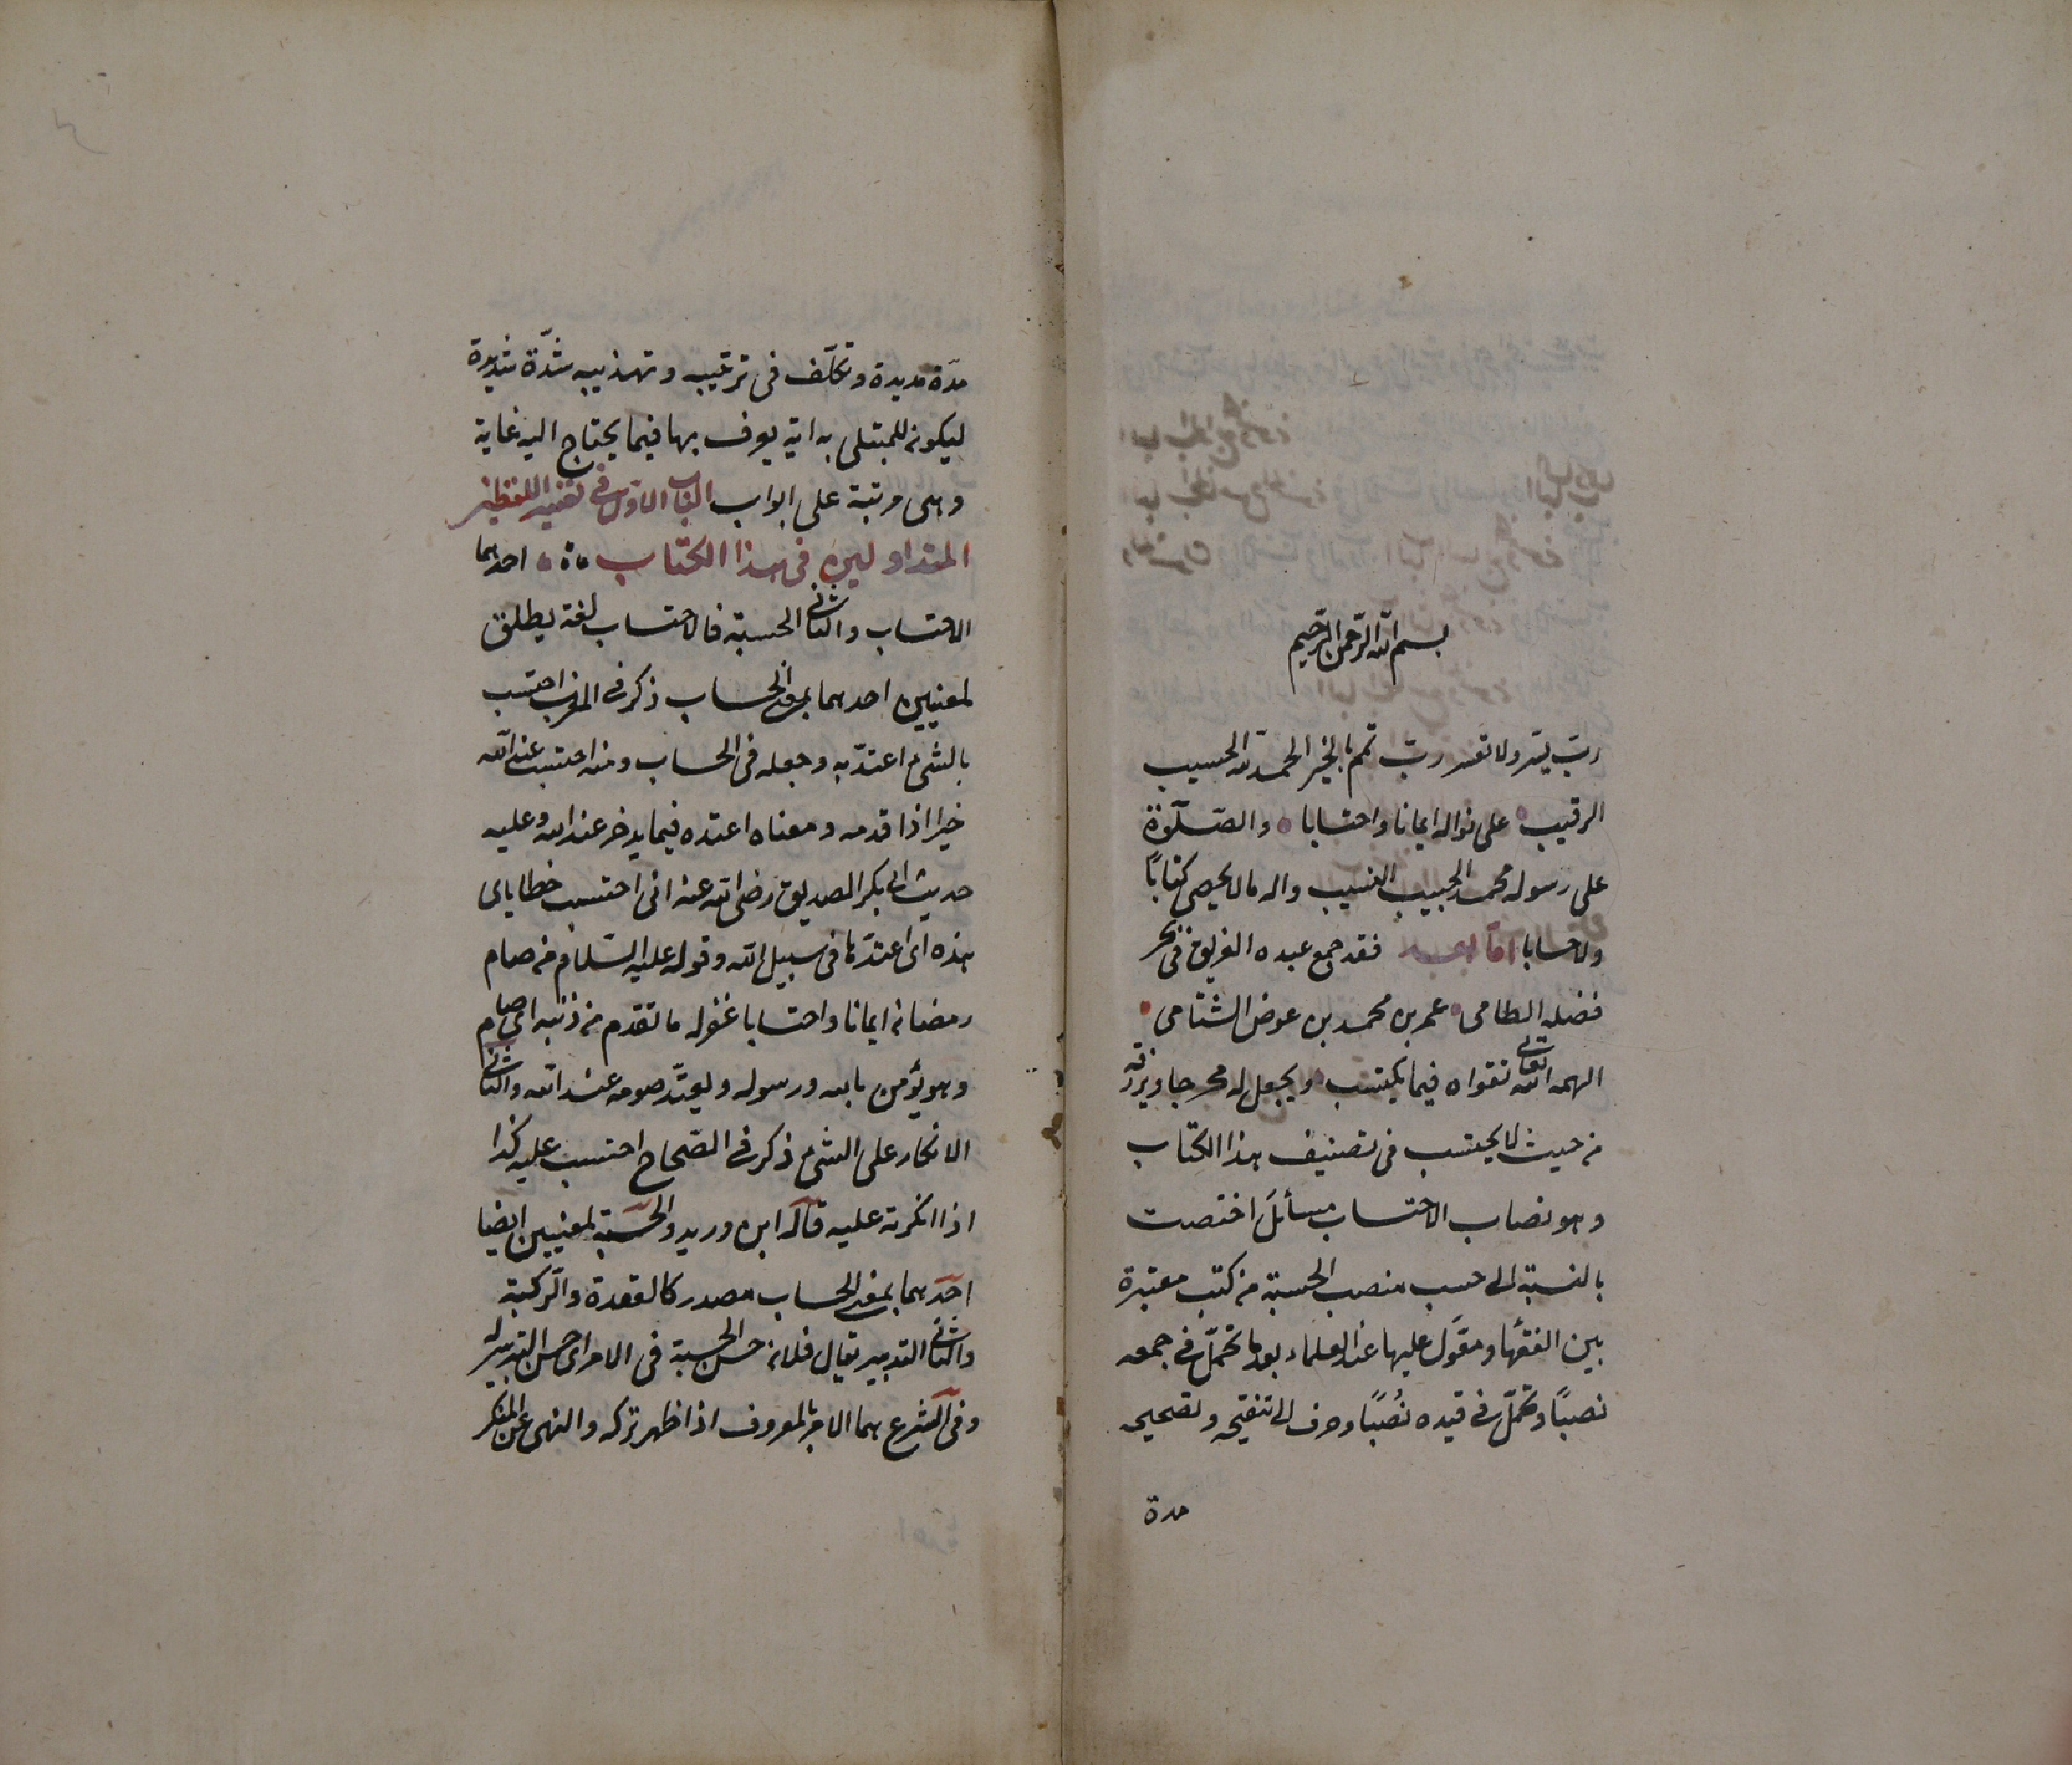 بسم الله الرحمن الرحيم
ربّ يسّر ولا تعسر ربّ تمم بالخير الحمد لله الحسيب
الرقيب على نواله ايمانا واحتسابا والصّلوٰة
على رسوله محمد الحبيب النسيب واله مالا يحصى كتابًا
ولا حسابا امّا بعد فقد جمع عبده الغريق في بحر
فضله الطامى عمر بن محمد بن عوض الشنامى
الهمه الله تعالى تقواه فيما يكتسب ويجعل له مخرجا ويرزقه
من حيث لا يحتسب فى تصنيف هذا الكتاب
وهو نصاب الاحتساب مسائل اختصت
بالنسبة الى حسب منصب الحسبة من كتب معتبرة
بين الفقها ومعّول عليها عند العلماء بعد ما تحمّل في جمعه
نصبًا وتحمّل في قيده نُصُبًا وصرف الى تنقيحه وتصحيحه
مدة
مدّة مديدة وتكلّف فى ترتيب وتهذيبه شدّة شديدة
ليكون للمبتلى به اية يعرف بها فيما يحتاج اليه غاية
وهى مرتبة على ابواب الباب الاوّل في تفسير اللفظين
المتداولين فى هذا الكتاب احدهما
الاحتساب والثانى الحسبة فالاحتساب لغة يطلق
لمعنيين احدهما بمعنى الحساب ذكر في المغرب احتسب
بالشئ اعتدّ به وجعله فى الحساب ومنه احتسبت عند الله
خيرا اذا قدمه ومعناه اعتده فيما يدخر عند الله وعليه
حديث ابى بكر الصديق رضى الله عنه انى احتسب خطاياى
هذه اى اعتدّها فى سبيل الله وقوله عليه السّلام من صام
رمضان ايمانا واحتسابا غفر له ما تقدم من ذنبه اى صام
وهو يؤمن بالله ورسوله ويعتدّ صومه عند الله والثانى
الانكار على الشئ ذكر في الصّحاح احتسب عليه كذا
اذا انكرته عليه قاله ابن دريد والحسبة لمعنيين ايضا
احدهما بمعنى الحساب مصدر كالقعدة والرّكبة
والثانى التدبير يقال فلان حسن الحسبة فى الامر اى حسن التدبير له
وفى الشرع هما الامر بالمعروف اذا ظهر تركه والنهى عن المنكر